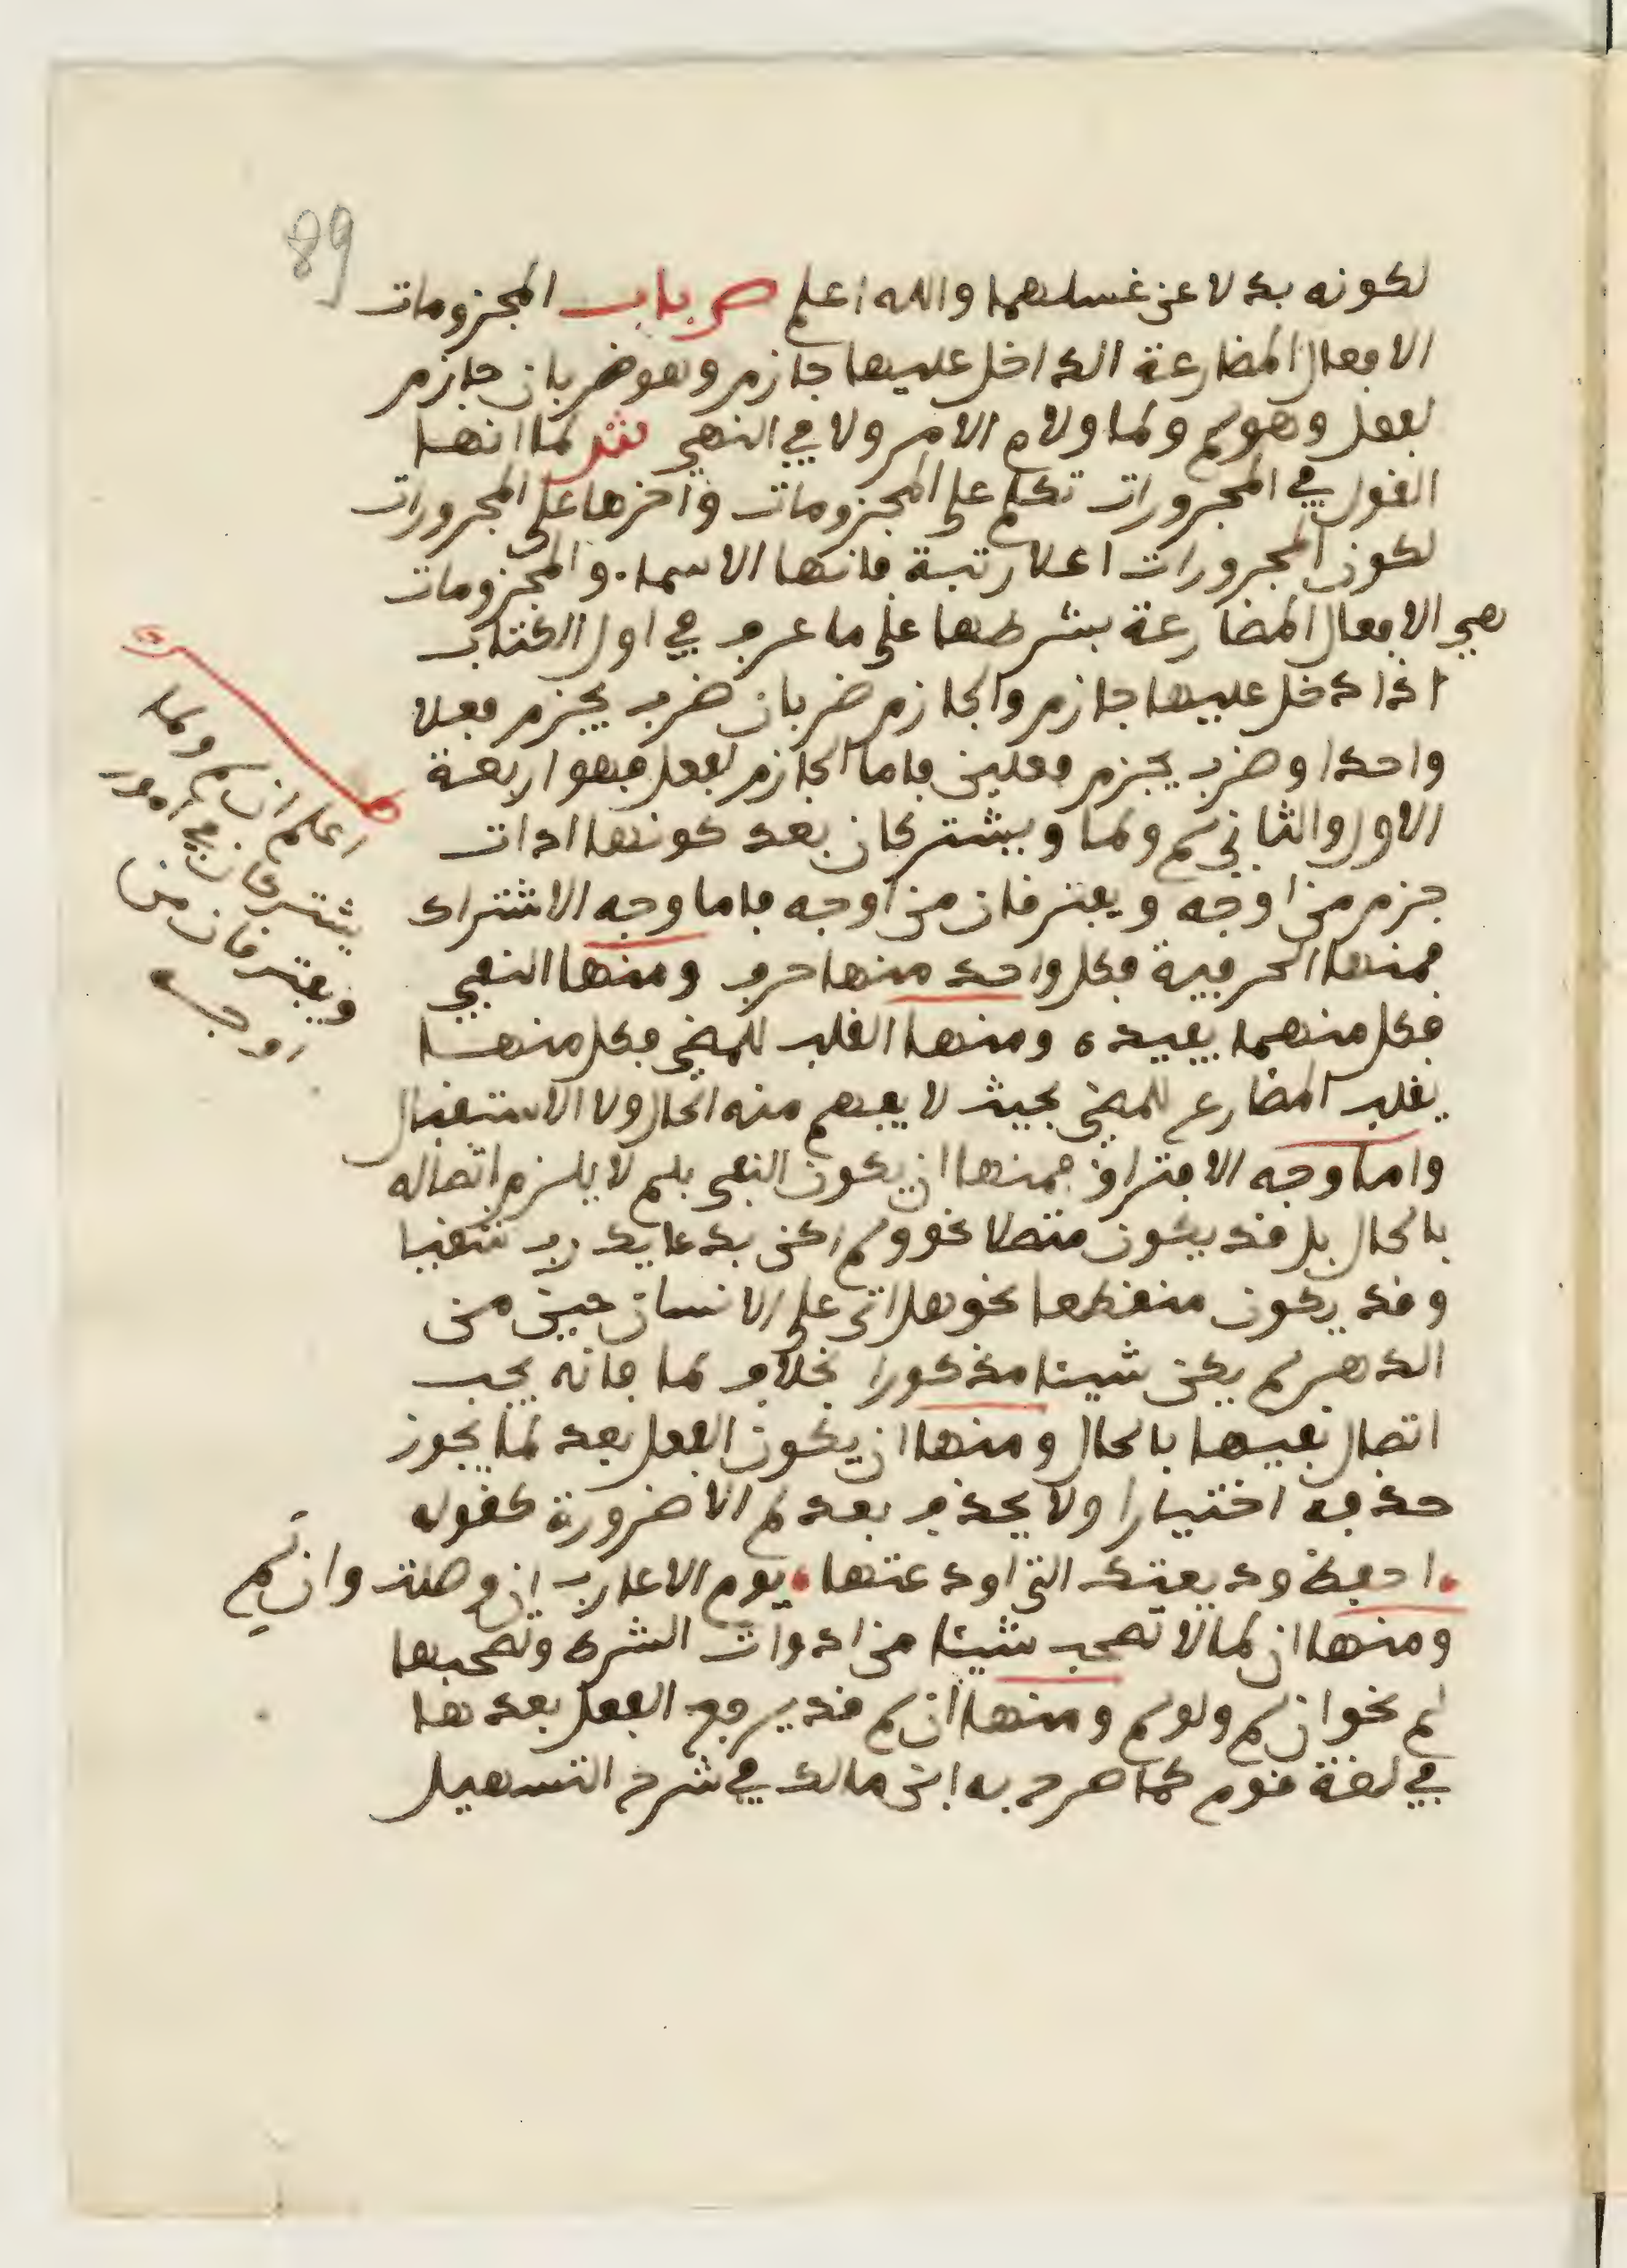 89
لكونه بدلا عن غسلهما والله اعلم ص باب المجزومات
الافعال المضارعة الداخل عليها جازم وهو ضربان جازم
لفعل وهو لم ولما ولام الامر ولا في النهي ش لما انها
القول في المجرورات تكلم على المجزومات واخرها على المجرورات
لكون المجرورات اعلا رتبة فانها الاسماء والمجزومات
هي الافعال المضارعة بشرطها على ما عرف في اول الكتاب
اذا دخل عليها جازم والجازم ضربان ضرب يجزم فعلا
واحدا وضرب يجزم فعلين فاما الجازم لفعل فهو اربعة
الاول والثاني لم ولما ويشتركان بعد كونها ادات
جزم من اوجه ويفترقان من اوجه فاما وجه الاشتراك
فمنها الحرفية فكل واحد منها حرف ومنها النفي
فكل منهما يفيده ومنها القلب للمضي فكل منها
يقلب المضارع للمضي بحيث لا يفهم منه الحال ولا الاستقبال
واما وجه الافتراق فمنها ان يكون النفي بلم لا يلزم اتصاله
بالحال بل قد يكون متصلا نحو ولم اكن بدعايك رب شقيا
وقد يكون منقطعا نحو هل اتى على الانسان حين من
الدهر لم يكن شيئا مذكورا بخلاف لما فانه يجب
اتصال نفيها بالحال ومنها ان يكون الفعل بعد لما يجوز
حذفه اختيارا ولا يحذف بعد لم الا ضرورة كقوله
احفظ وديعتك التي اودعتها يوم الاعارب ان وصلت وان لم
ومنها ان لما لا تصحب شيئا من ادوات الشرط وتصحبها
لم نحو ان لم ولو لم ومنها ان لم قد يرفع الفعل بعدها
في لغة قوم كما صرح به ابن مالك في شرح التسهيل
اعلم ان لم ولما
يشتركان في امور
ويفترقان من
اوجه